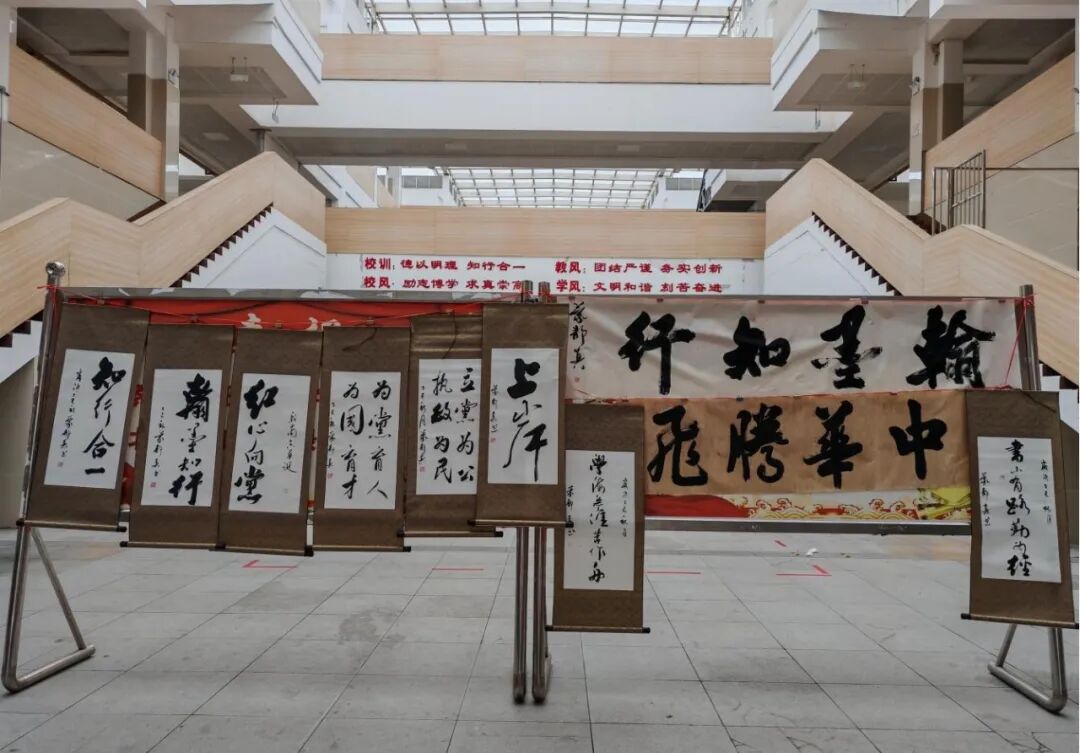 校训：德以明理 知行合一 教风：团结严谨 务实创新
校风：励志博学 求真崇高 学风：文明和谐 刻苦奋进
知行合一
翰墨知行
红心向黨
为黨育人
为國育才
立黨为公
执政为民
上岸
翰墨知行
中華騰飛
學海無涯苦作舟
書山有路勤为径